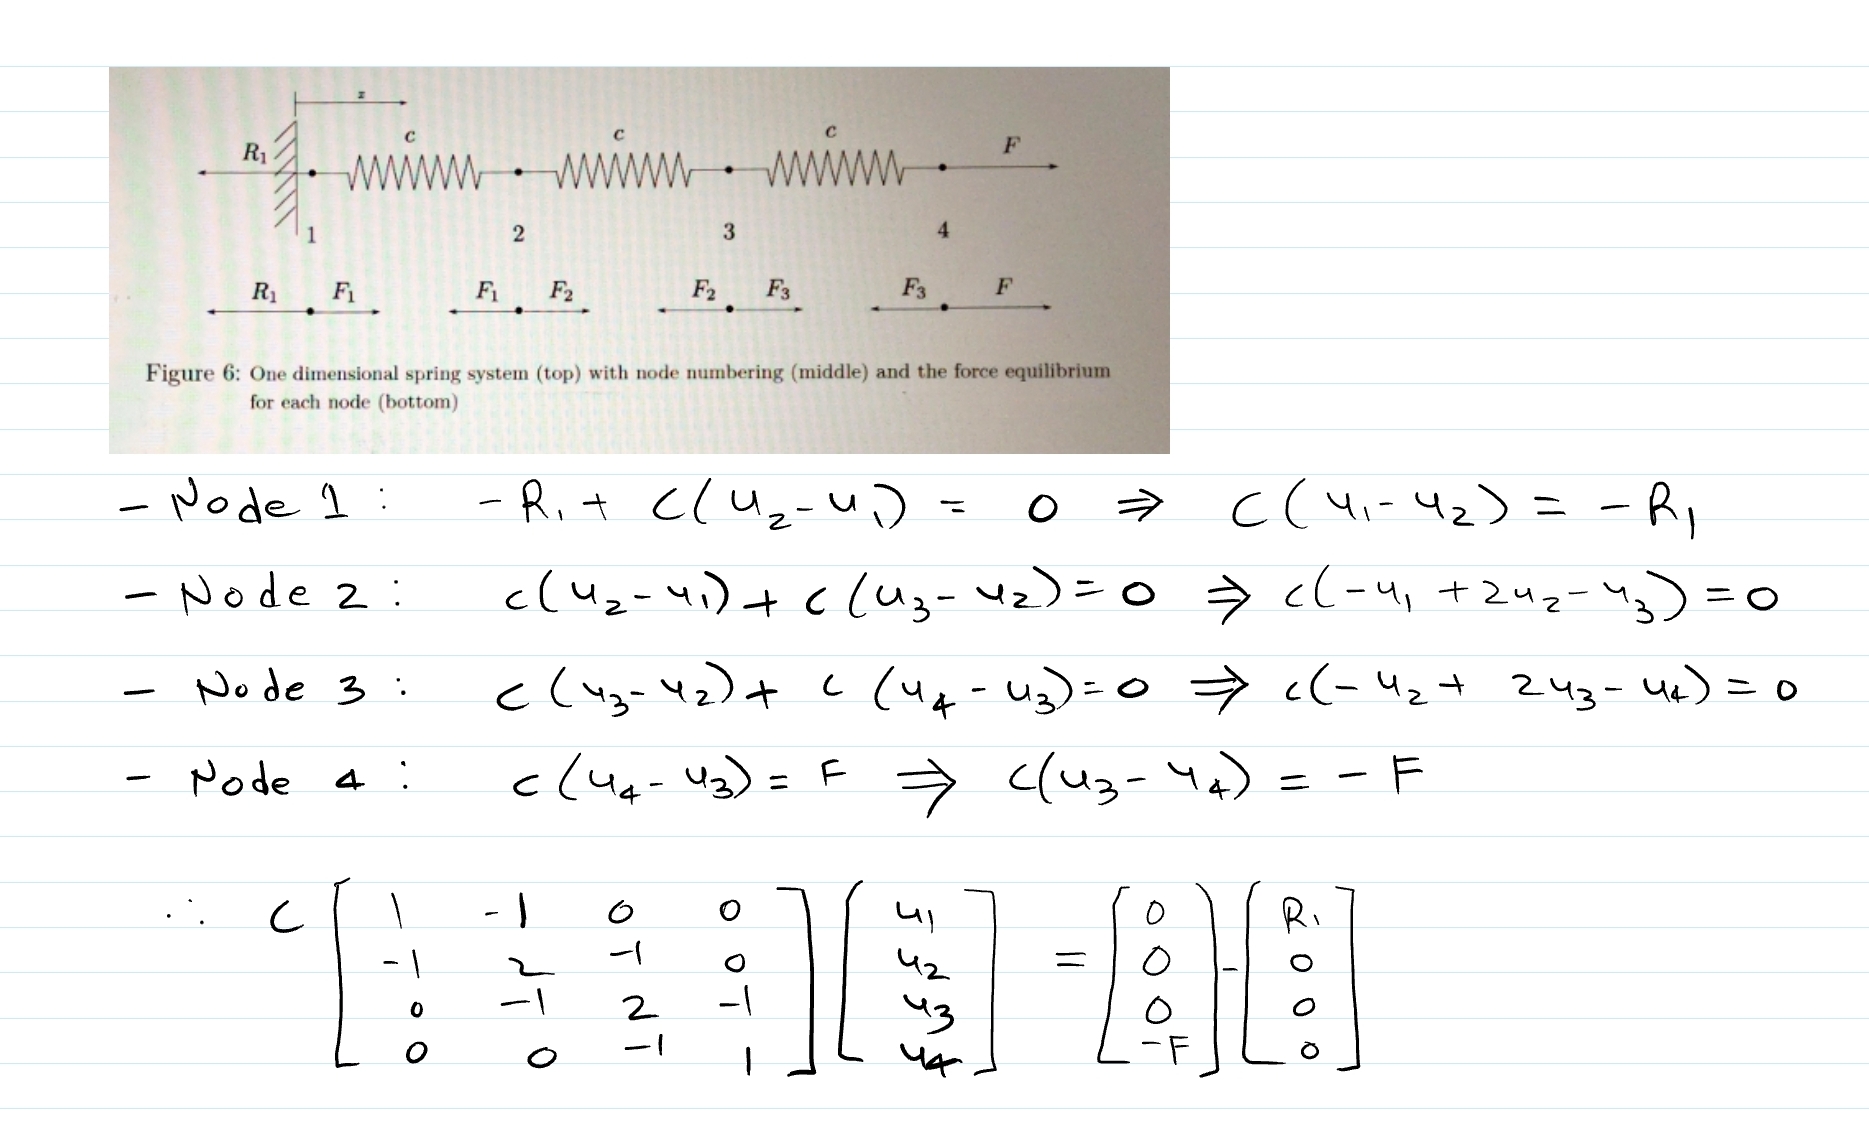 z
R₁ c c c F
1 2 3 4
R₁ F₁ F₁ F₂ F₂ F₃ F₃ F
Figure 6: One dimensional spring system (top) with node numbering (middle) and the force equilibrium
for each node (bottom)
- Node 1 : -R₁ + c(u₂-u₁) = 0 ⇒ c(u₁-u₂) = -R₁
- Node 2 : c(u₂-u₁) + c(u₃-u₂) = 0 ⇒ c(-u₁ + 2u₂ - u₃) = 0
- Node 3 : c(u₃-u₂) + c(u₄-u₃) = 0 ⇒ c(-u₂ + 2u₃ - u₄) = 0
- Node 4 : c(u₄-u₃) = F ⇒ c(u₃-u₄) = -F
∴ c [ 1 -1 0 0 ] [ u₁ ] = [ 0 ] - [ R₁ ]
-1 2 -1 0 u₂ 0 0
0 -1 2 -1 u₃ 0 0
0 0 -1 1 u₄ -F 0